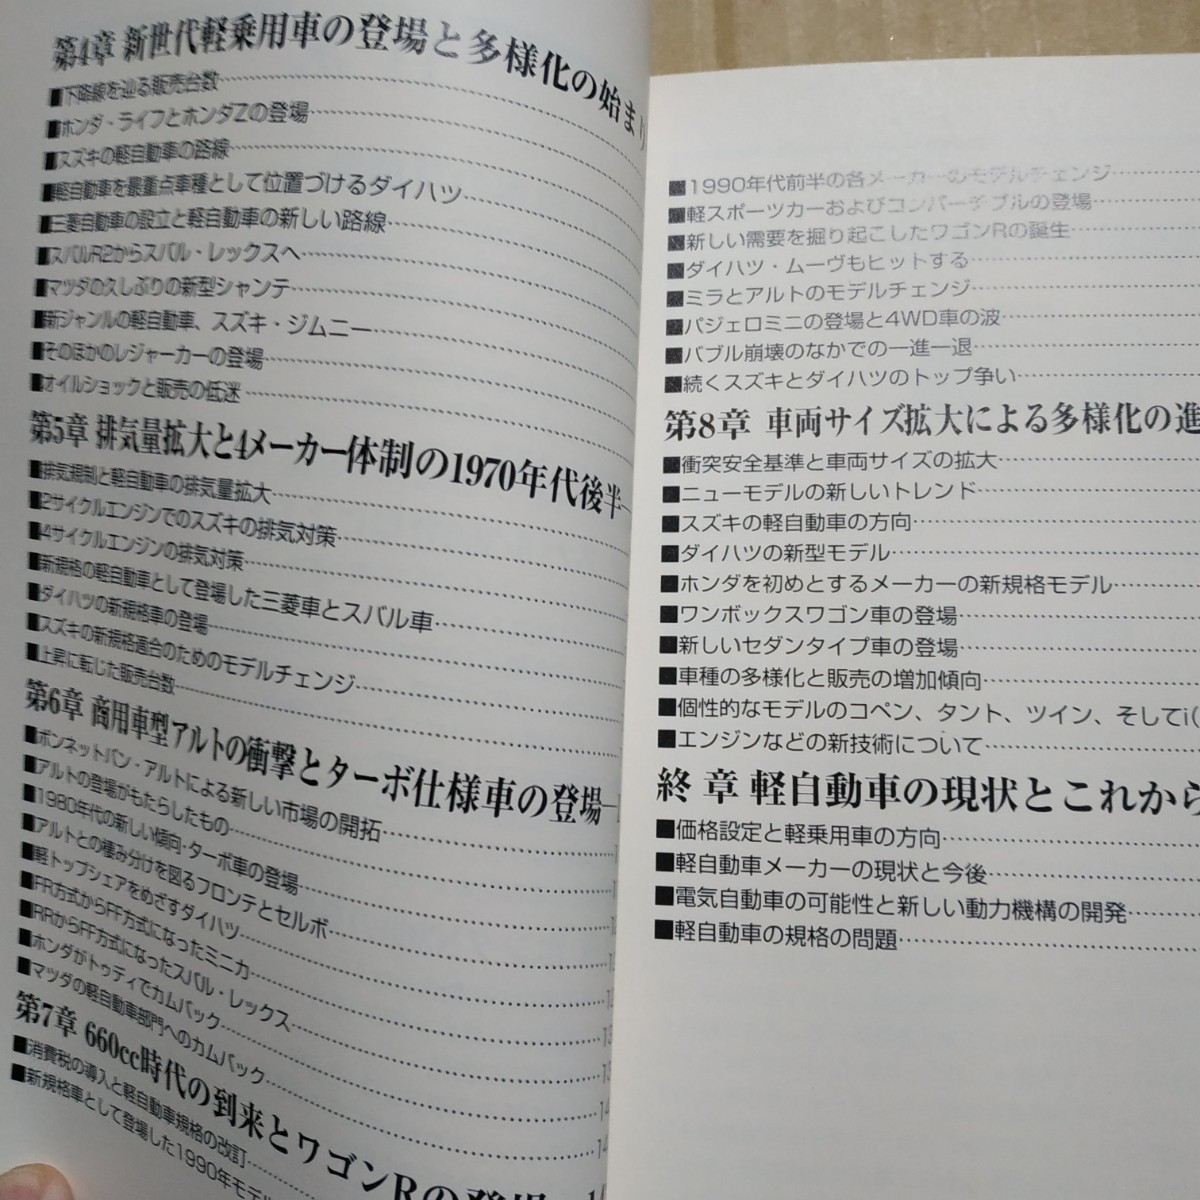 第4章 新世代軽乗用車の登場と多様化の始まり
■下降線を辿る販売台数
■ホンダ・ライフとホンダZの登場
■スズキの軽自動車の路線
■軽自動車を最重点車種として位置づけるダイハツ
■三菱自動車の設立と軽自動車の新しい路線
■スバルR2からスバル・レックスへ
■マツダの久しぶりの新型シャンテ
■新ジャンルの軽自動車、スズキ・ジムニー
■そのほかのレジャーカーの登場
■オイルショックと販売の低迷
第5章 排気量拡大と4メーカー体制の1970年代後半
■排気規制と軽自動車の排気量拡大
■2サイクルエンジンでのスズキの排気対策
■4サイクルエンジンの排気対策
■新規格の軽自動車として登場した三菱車とスバル車
■ダイハツの新規格車の登場
■スズキの新規格適合のためのモデルチェンジ
■上昇に転じた販売台数
第6章 商用車型アルトの衝撃とターボ仕様車の登場
■ボンネットバン・アルトによる新しい市場の開拓
■アルトの登場がもたらしたもの
■1980年代の新しい傾向・ターボ車の登場
■アルトとの棲み分けを図るフロンテとセルボ
■軽トップシェアをめざすダイハツ
■FR方式からFF方式になったミニカ
■RRからFF方式になったスバル・レックス
■ホンダがトゥディでカムバック
■マツダの軽自動車部門へのカムバック
第7章 660cc時代の到来とワゴンRの登場
■消費税の導入と軽自動車規格の改訂
■新規格車として登場した1990年モデル
■1990年代前半の各メーカーのモデルチェンジ
■軽スポーツカーおよびコンバーチブルの登場
■新しい需要を掘り起こしたワゴンRの誕生
■ダイハツ・ムーヴもヒットする
■ミラとアルトのモデルチェンジ
■パジェロミニの登場と4WD車の波
■バブル崩壊のなかでの一進一退
■続くスズキとダイハツのトップ争い
第8章 車両サイズ拡大による多様化の進
■衝突安全基準と車両サイズの拡大
■ニューモデルの新しいトレンド
■スズキの軽自動車の方向
■ダイハツの新型モデル
■ホンダを初めとするメーカーの新規格モデル
■ワンボックスワゴン車の登場
■新しいセダンタイプ車の登場
■車種の多様化と販売の増加傾向
■個性的なモデルのコペン、タント、ツイン、そしてi(
■エンジンなどの新技術について
終 章 軽自動車の現状とこれから
■価格設定と軽乗用車の方向
■軽自動車メーカーの現状と今後
■電気自動車の可能性と新しい動力機構の開発
■軽自動車の規格の問題